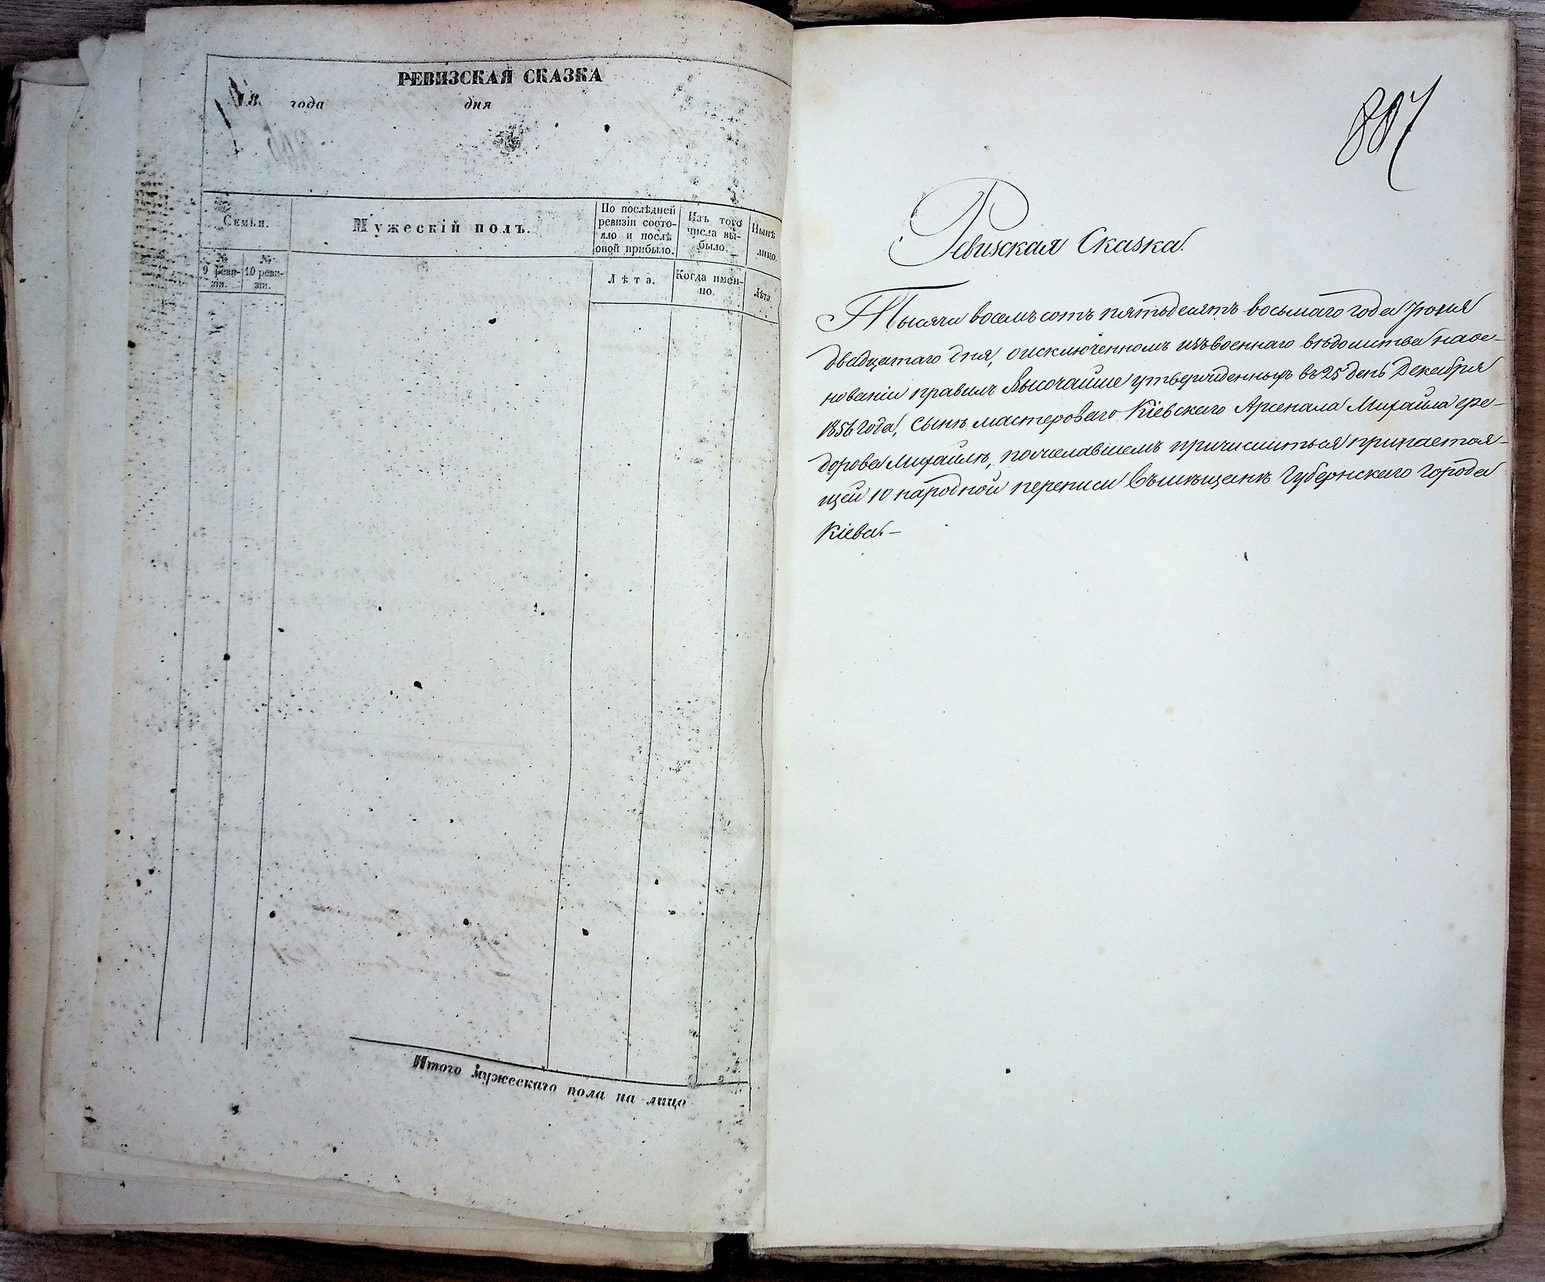 РЕВИЗСКАЯ СКАЗКА
18 года дня
Семьи.
№ 9 реви-
зіи.
№ 10 реви-
зіи.
Мужескій полъ.
По послѣдней
ревизіи состо-
яло и послѣ
оной прибыло.
Лѣта.
Изъ того
числа вы-
было.
Когда имен-
но.
Нынѣ
лицо
Лѣта.
Итого мужескаго пола на лицо
887
Ревизская Сказка
Тысяча восемьсотъ пятьдесятъ восьмаго года Іюня
двадцатаго дня, о исключенномъ изъ военнаго вѣдомства на ос-
нованіи правилъ Высочайше утвержденныхъ въ 25 день Декабря
1856 года, сынѣ мастероваго Кіевскаго Арсенала Михаила Фе-
дорова Михайлѣ, пожелавшемъ причислиться при настоя-
щей 10 народной переписи въ мѣщане Губернскаго города
Кіева. –